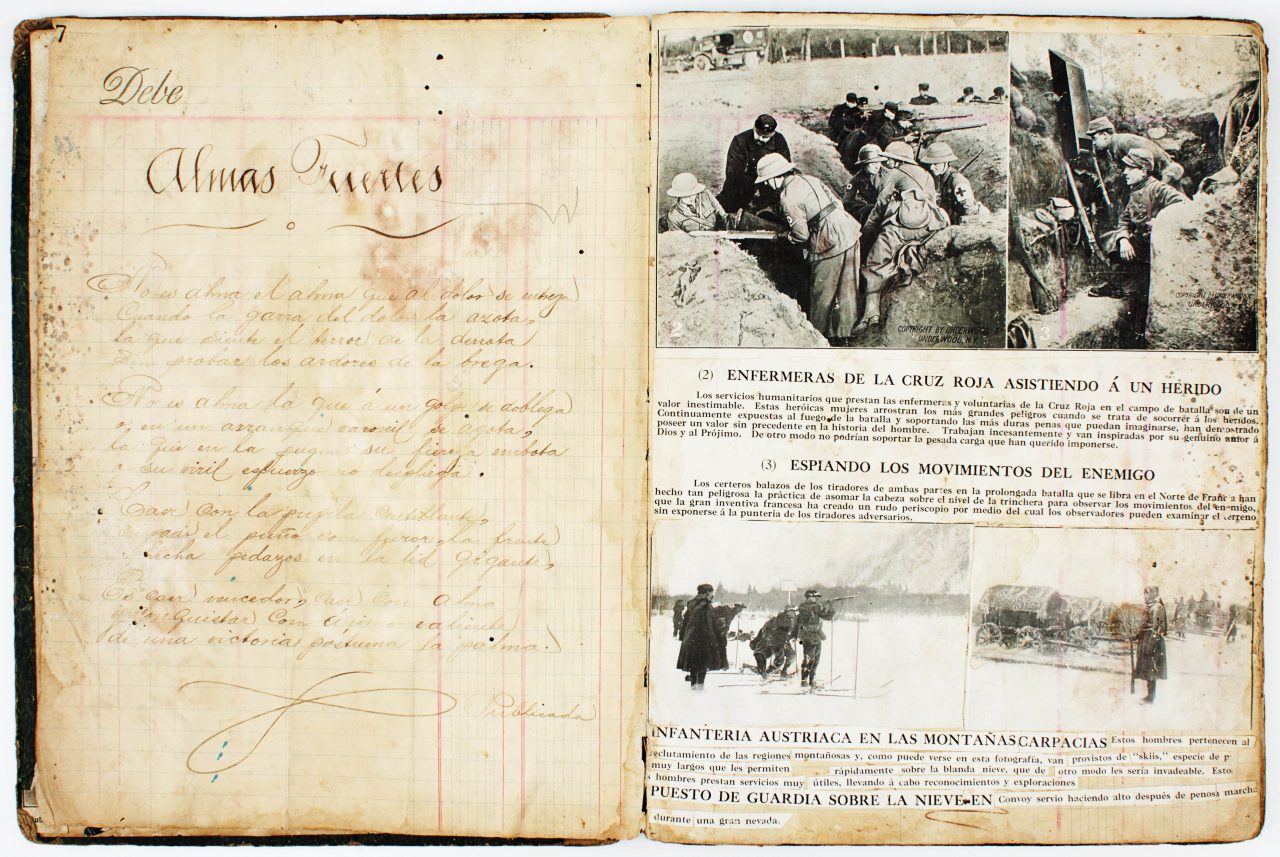 7
Debe
Almas Fuertes
No es alma el alma que al dolor se entrega
Cuando la garra del dolor la azota,
la que siente el terror de la derrota
probar los ardores de la brega.
No es alma la que á un golpe se doblega
o, en un arranque varonil se
la que en la pugna su fiereza embota
o su viril esfuerzo no despliega.
Caer con la pupila
el puño con furor, la frente
hecha pedazos en la lid gigante,
Es caer vencedor, caer con alma
y conquistar con ánimo valiente
de una victoria póstuma la palma.
Publicada
2
COPYRIGHT BY UNDERWOOD &
UNDERWOOD, N.Y.
3
COPYRIGHT BY UNDERWOOD &
UNDERWOOD
(2) ENFERMERAS DE LA CRUZ ROJA ASISTIENDO Á UN HERIDO
Los servicios humanitarios que prestan las enfermeras y voluntarias de la Cruz Roja en el campo de batalla son de un
valor inestimable. Estas heróicas mujeres arrostran los más grandes peligros cuando se trata de socorrer á los heridos.
Continuamente expuestas al fuego de la batalla y soportando las más duras penas que puedan imaginarse, han demostrado
poseer un valor sin precedente en la historia del hombre. Trabajan incesantemente y van inspiradas por su genuino amor á
Dios y al Prójimo. De otro modo no podrían soportar la pesada carga que han querido imponerse.
(3) ESPIANDO LOS MOVIMIENTOS DEL ENEMIGO
Los certeros balazos de los tiradores de ambas partes en la prolongada batalla que se libra en el Norte de Francia han
hecho tan peligrosa la práctica de asomar la cabeza sobre el nivel de la trinchera para observar los movimientos del enemigo,
que la gran inventiva francesa ha creado un rudo periscopio por medio del cual los observadores pueden examinar el terreno
sin exponerse á la puntería de los tiradores adversarios.
INFANTERIA AUSTRIACA EN LAS MONTAÑAS CARPACIAS Estos hombres pertenecen al
reclutamiento de las regiones montañosas y, como puede verse en esta fotografía, van provistos de "skiis," especie de
muy largos que les permiten rápidamente sobre la blanda nieve, que de otro modo les sería invadeable. Estos
hombres prestan servicios muy útiles, llevando á cabo reconocimientos y exploraciones
PUESTO DE GUARDIA SOBRE LA NIEVE-EN Convoy servio haciendo alto después de penosa marcha
durante una gran nevada.